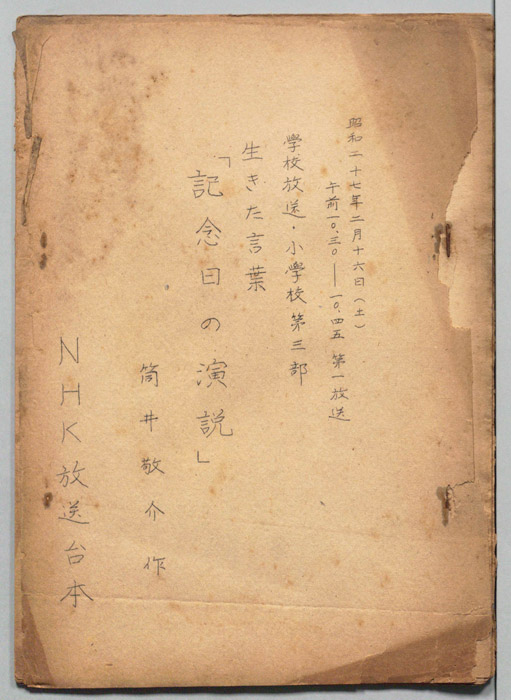 昭和二十七年二月十六日(土)
午前一〇.三〇―一〇.四五 第一放送
學校放送・小學校第三部
生きた言葉
「記念日の演説」
筒井敬介 作
NHK放送台本